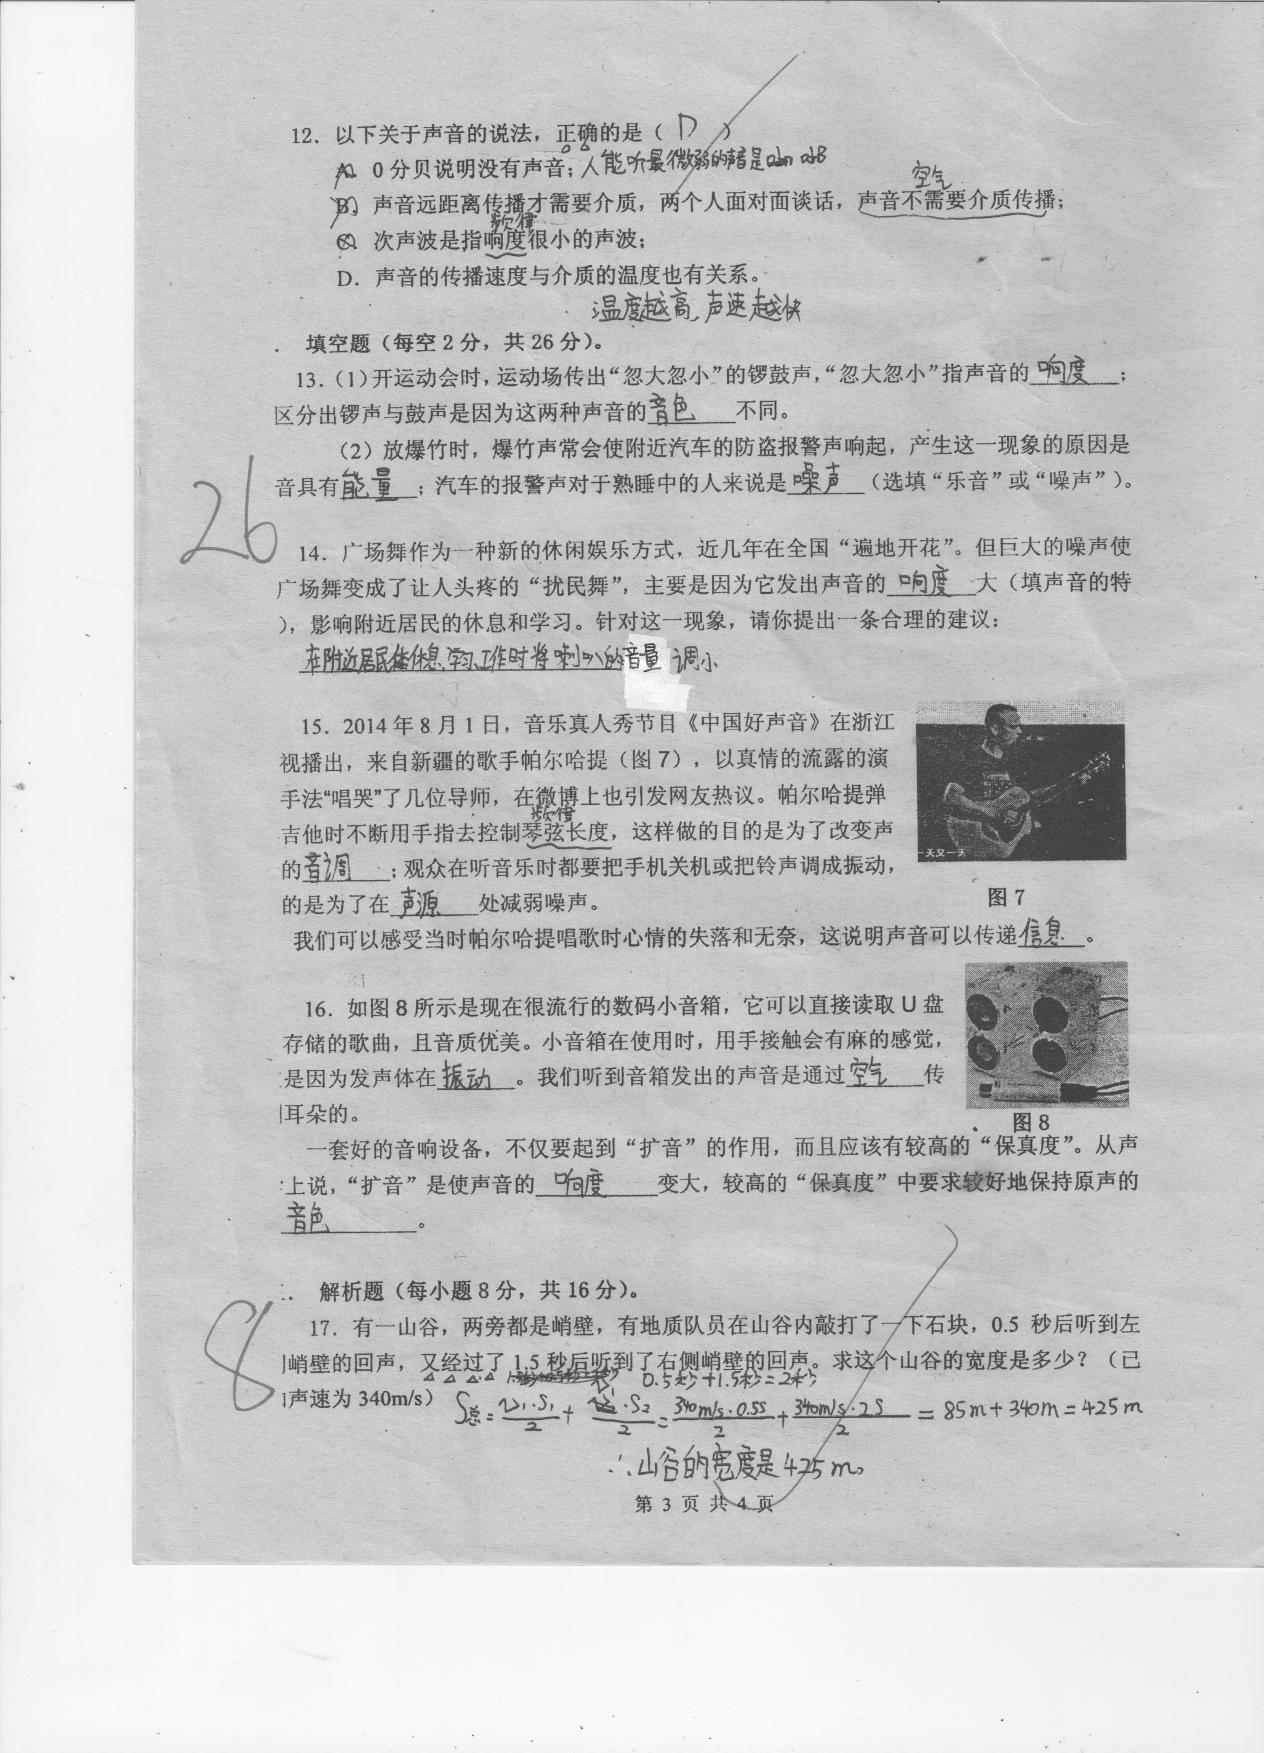 12. 以下关于声音的说法，正确的是（ D ）
A. 0分贝说明没有声音；人能听最微弱的声音是 0dB
空气
B. 声音远距离传播才需要介质，两个人面对面谈话，声音不需要介质传播；
频率
C. 次声波是指响度很小的声波；
D. 声音的传播速度与介质的温度也有关系。
温度越高，声速越快
. 填空题（每空2分，共26分）。
13.（1）开运动会时，运动场传出“忽大忽小”的锣鼓声，“忽大忽小”指声音的 响度 ；
区分出锣声与鼓声是因为这两种声音的 音色 不同。
（2）放爆竹时，爆竹声常会使附近汽车的防盗报警声响起，产生这一现象的原因是
音具有 能量 ；汽车的报警声对于熟睡中的人来说是 噪声 （选填“乐音”或“噪声”）。
26
14. 广场舞作为一种新的休闲娱乐方式，近几年在全国“遍地开花”。但巨大的噪声使
广场舞变成了让人头疼的“扰民舞”，主要是因为它发出声音的 响度 大（填声音的特
），影响附近居民的休息和学习。针对这一现象，请你提出一条合理的建议：
在附近居民休息、学习、工作时将喇叭的音量 调小
15. 2014年8月1日，音乐真人秀节目《中国好声音》在浙江
视播出，来自新疆的歌手帕尔哈提（图7），以真情的流露的演
手法“唱哭”了几位导师，在微博上也引发网友热议。帕尔哈提弹
频率
吉他时不断用手指去控制琴弦长度，这样做的目的是为了改变声
的 音调 ；观众在听音乐时都要把手机关机或把铃声调成振动，
的是为了在 声源 处减弱噪声。
一天又一天
图7
我们可以感受当时帕尔哈提唱歌时心情的失落和无奈，这说明声音可以传递 信息 。
16. 如图8所示是现在很流行的数码小音箱，它可以直接读取U盘
存储的歌曲，且音质优美。小音箱在使用时，用手接触会有麻的感觉，
是因为发声体在 振动 。我们听到音箱发出的声音是通过 空气 传
耳朵的。
图8
一套好的音响设备，不仅要起到“扩音”的作用，而且应该有较高的“保真度”。从声
上说，“扩音”是使声音的 响度 变大，较高的“保真度”中要求较好地保持原声的
音色 。
. 解析题（每小题8分，共16分）。
8
17. 有一山谷，两旁都是峭壁，有地质队员在山谷内敲打了一下石块，0.5 秒后听到左
峭壁的回声，又经过了1.5秒后听到了右侧峭壁的回声。求这个山谷的宽度是多少？（已
0.5秒+1.5秒=2秒
声速为 340m/s） S总=v₁·S₁/2 + v₂·S₂/2 = 340m/s·0.5s/2 + 340m/s·2s/2 = 85m+340m=425m
∴山谷的宽度是425m。
第 3 页 共 4 页